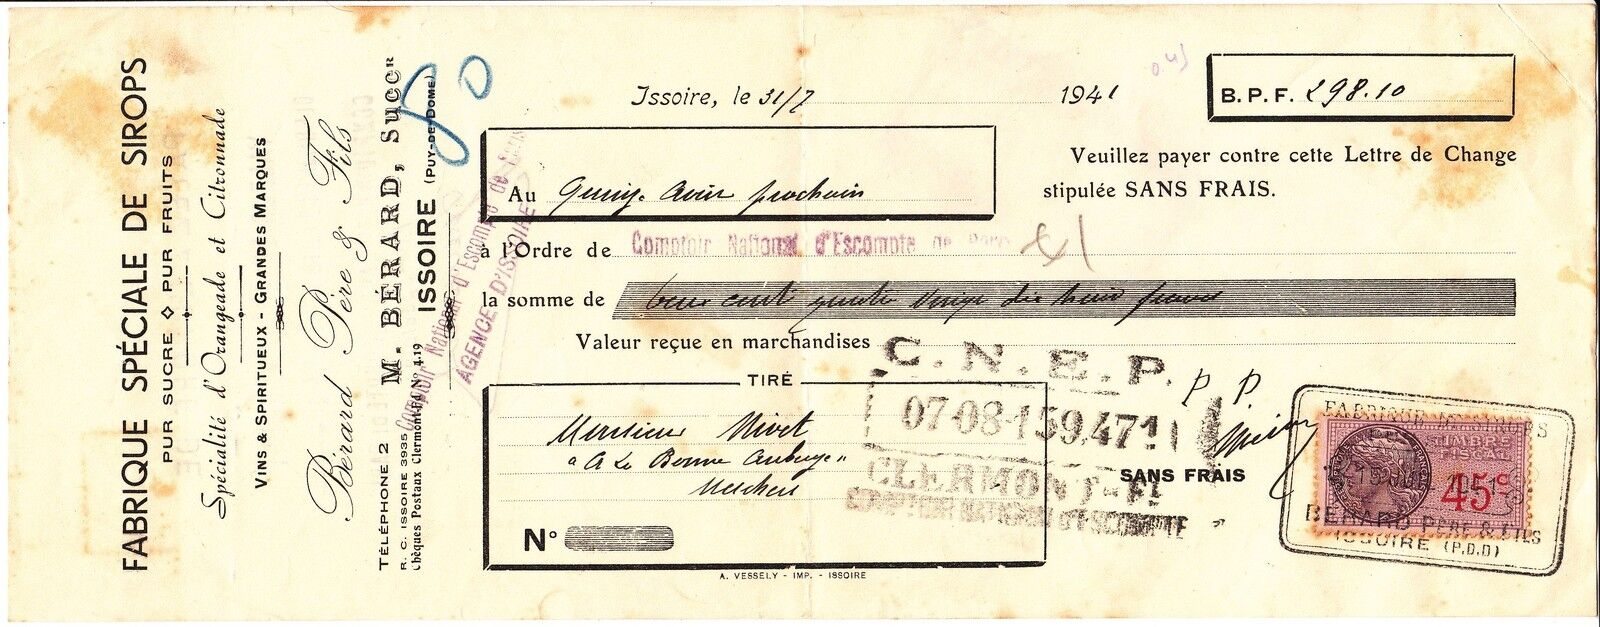 FABRIQUE SPÉCIALE DE SIROPS
PUR SUCRE ◊ PUR FRUITS
Spécialité d'Orangeade et Citronnade
VINS & SPIRITUEUX - GRANDES MARQUES
Bérard Père & Fils
M. BÉRARD, Succr
TÉLÉPHONE 2 ISSOIRE (PUY-DE-DOME)
R. C. ISSOIRE 3935
Chèques Postaux Clermont-Fd N° 4.19
Comptoir National d'Escompte de
AGENCE D'ISSOIRE
80
0.45
Issoire, le 31/7 1941
B. P. F. 298.10
Veuillez payer contre cette Lettre de Change
stipulée SANS FRAIS.
Au prochain
à l'Ordre de Comptoir National d'Escompte de Paris
la somme de deux cent quatre vingt dix huit francs
Valeur reçue en marchandises
C. N. E. P.
07-08-1 59,471
CLERMONT-Fd
COMPTOIR NATIONAL D'ESCOMPTE
TIRÉ
Monsieur Nivet
"A La Bonne Auberge"
N°
P. P.
SANS FRAIS
FABRIQUE DE SIROPS
TIMBRE
FISCAL
45c
BÉRARD PÈRE & FILS
ISSOIRE (P.D.D)
A. VESSELY - IMP. - ISSOIRE